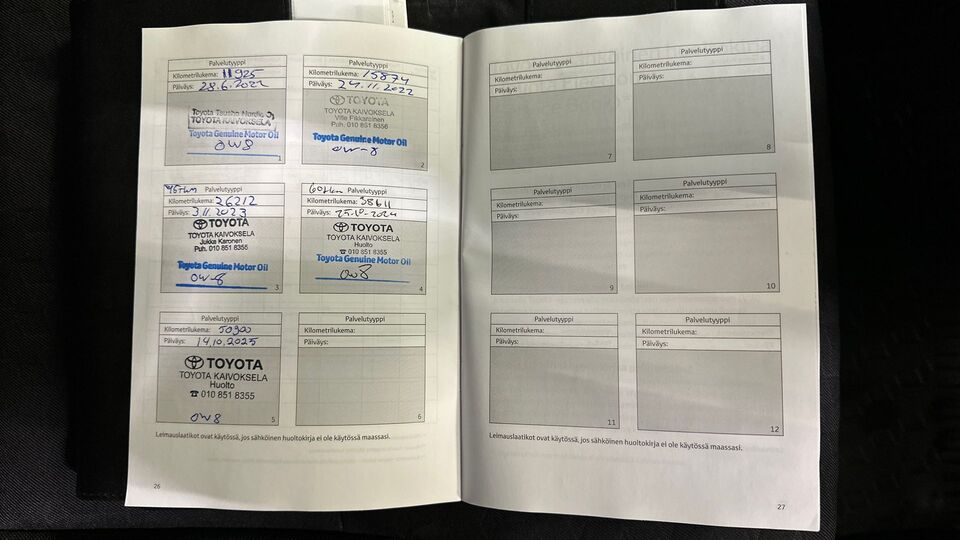 Palvelutyyppi
Kilometrilukema: 11925
Päiväys: 28.6.2022
Toyota Tsusho Nordic Oy
TOYOTA KAIVOKSELA
Toyota Genuine Motor Oil
0W8
1
Palvelutyyppi
Kilometrilukema: 15874
Päiväys: 24.11.2022
TOYOTA
TOYOTA KAIVOKSELA
Ville Pikkarainen
Puh. 010 851 8356
Toyota Genuine Motor Oil
0W-8
2
45tkm Palvelutyyppi
Kilometrilukema: 26212
Päiväys: 3.11.2023
TOYOTA
TOYOTA KAIVOKSELA
Jukka Karonen
Puh. 010 851 8355
Toyota Genuine Motor Oil
0W-8
3
60tkm Palvelutyyppi
Kilometrilukema: 38611
Päiväys: 25.10-2024
TOYOTA
TOYOTA KAIVOKSELA
Huolto
☎ 010 851 8355
Toyota Genuine Motor Oil
0W8
4
Palvelutyyppi
Kilometrilukema: 50900
Päiväys: 14.10.2025
TOYOTA
TOYOTA KAIVOKSELA
Huolto
☎ 010 851 8355
0W8
5
Palvelutyyppi
Kilometrilukema:
Päiväys:
6
Leimauslaatikot ovat käytössä, jos sähköinen huoltokirja ei ole käytössä maassasi.
26
Palvelutyyppi
Kilometrilukema:
Päiväys:
7
Palvelutyyppi
Kilometrilukema:
Päiväys:
8
Palvelutyyppi
Kilometrilukema:
Päiväys:
9
Palvelutyyppi
Kilometrilukema:
Päiväys:
10
Palvelutyyppi
Kilometrilukema:
Päiväys:
11
Palvelutyyppi
Kilometrilukema:
Päiväys:
12
Leimauslaatikot ovat käytössä, jos sähköinen huoltokirja ei ole käytössä maassasi.
27